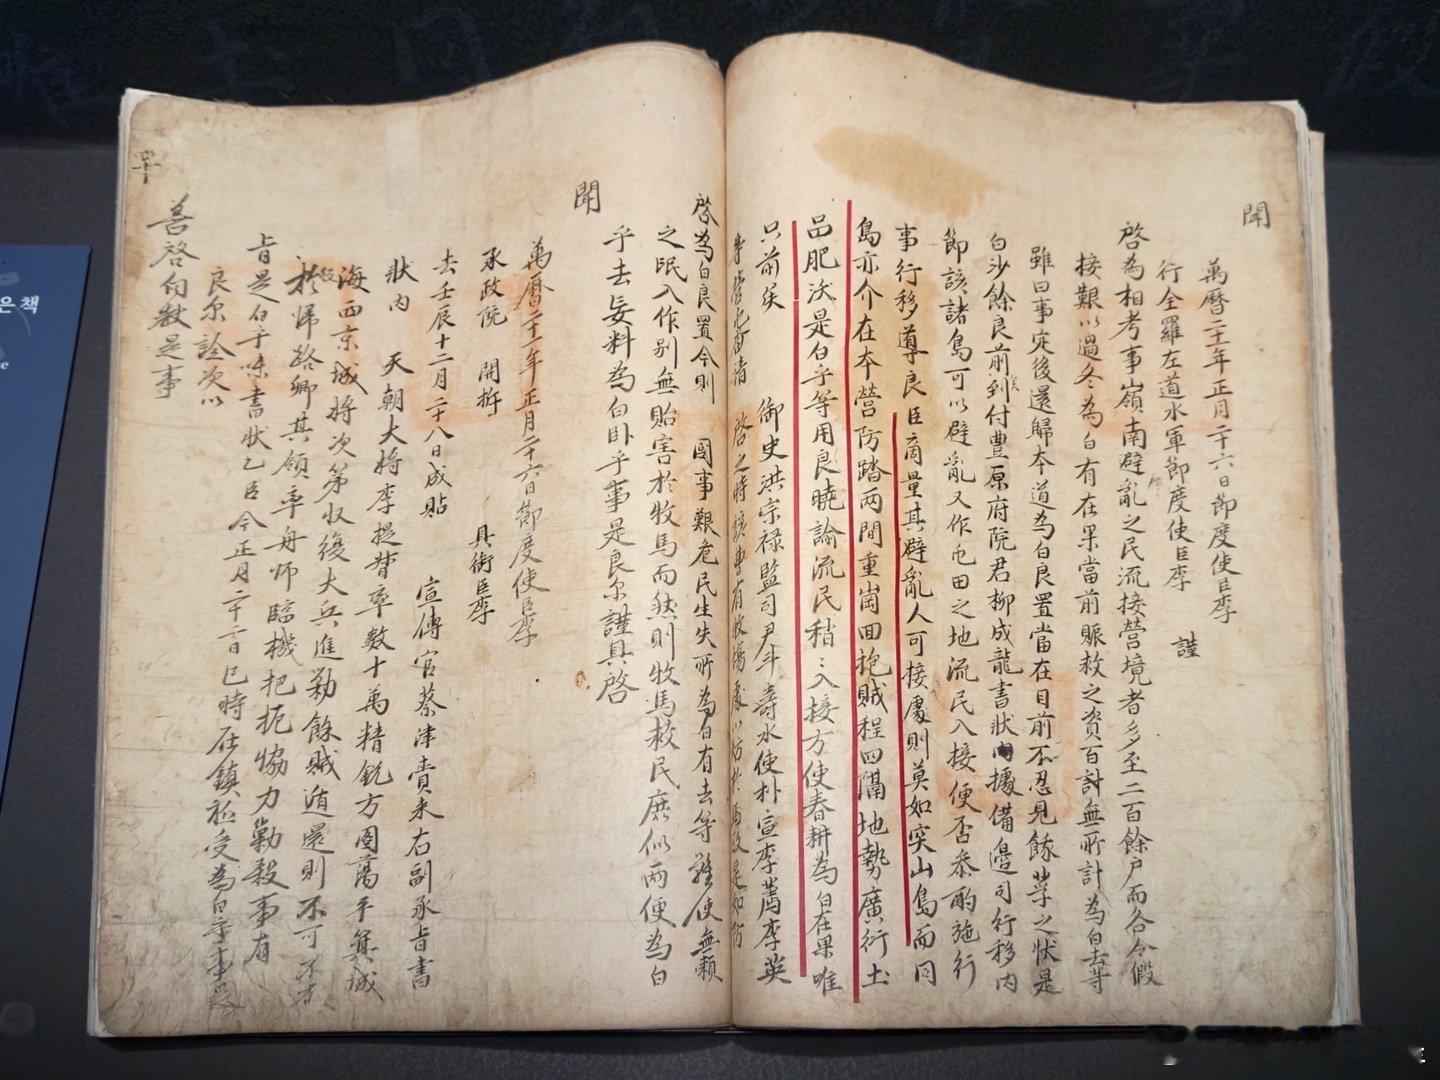 聞
萬曆二十一年正月二十六日節度使臣李
行全羅左道水軍節度使臣李 謹
啓為相考事嶺南避亂之民流接營境者多至二百餘户而各令假
接艱以過冬為白有在果當前賑救之資百計無所計為白去等
雖曰事定後還歸本道為白良置當在目前不忍見餓莩之狀是
白沙餘良前到付豊原府院君柳成龍書狀內據備邊司行移内
節該諸島可以避亂又作屯田之地流民入接便否叅酌施行
事行移導良臣商量其避亂人可接處則莫如突山島而同
島亦介在本營防踏兩間重崗回抱賊程四隔地勢廣衍土
品肥沃是白乎等用良曉諭流民稍〻入接方使春耕為白在果唯
只前矣 御史洪宗祿監司尹斗壽水使朴宣李薦李英
啓之時該
啓為白良置今則 國事艱危民生失所為白有去等雖使無賴
之氓入作别無貽害於牧馬而然則牧馬救民庶似兩便為白
乎去妄料為白卧乎事是良尔謹具啓
聞
萬曆二十一年正月二十六日節度使臣李
承政院 開拆 具銜臣李
去壬辰十二月二十八日成貼 宣傳官蔡津賫来右副承旨書
狀内 天朝大將李提督率數十萬精銳方圖蕩平箕城
海西京城將次第収復大兵進勦餘賊遁還則不可不
於歸路卿其領率舟師臨機把扼恊力勦殺事有
旨是白乎味書狀乙臣今正月二十二日巳時在鎮祗受為白乎事是
良尔詮次以
善啓向敎是事
은 책